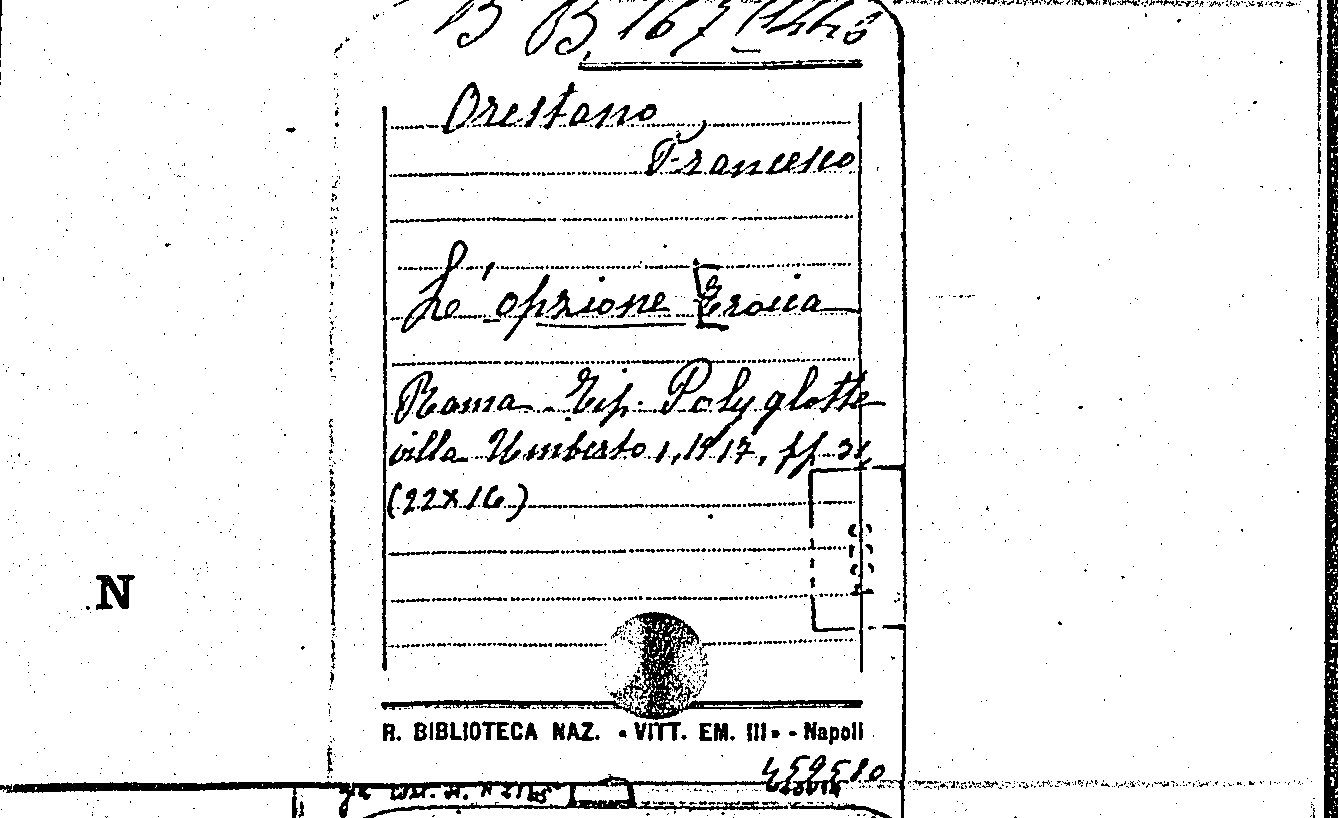 B B. 167
Orestano
Francesco
L'opzione Eroica
Roma Tip. Polyglotte
villa Umberto 1, 1917, pp 31
(22x16)
N
R. BIBLIOTECA NAZ. «VITT. EM. III» - Napoli
459580